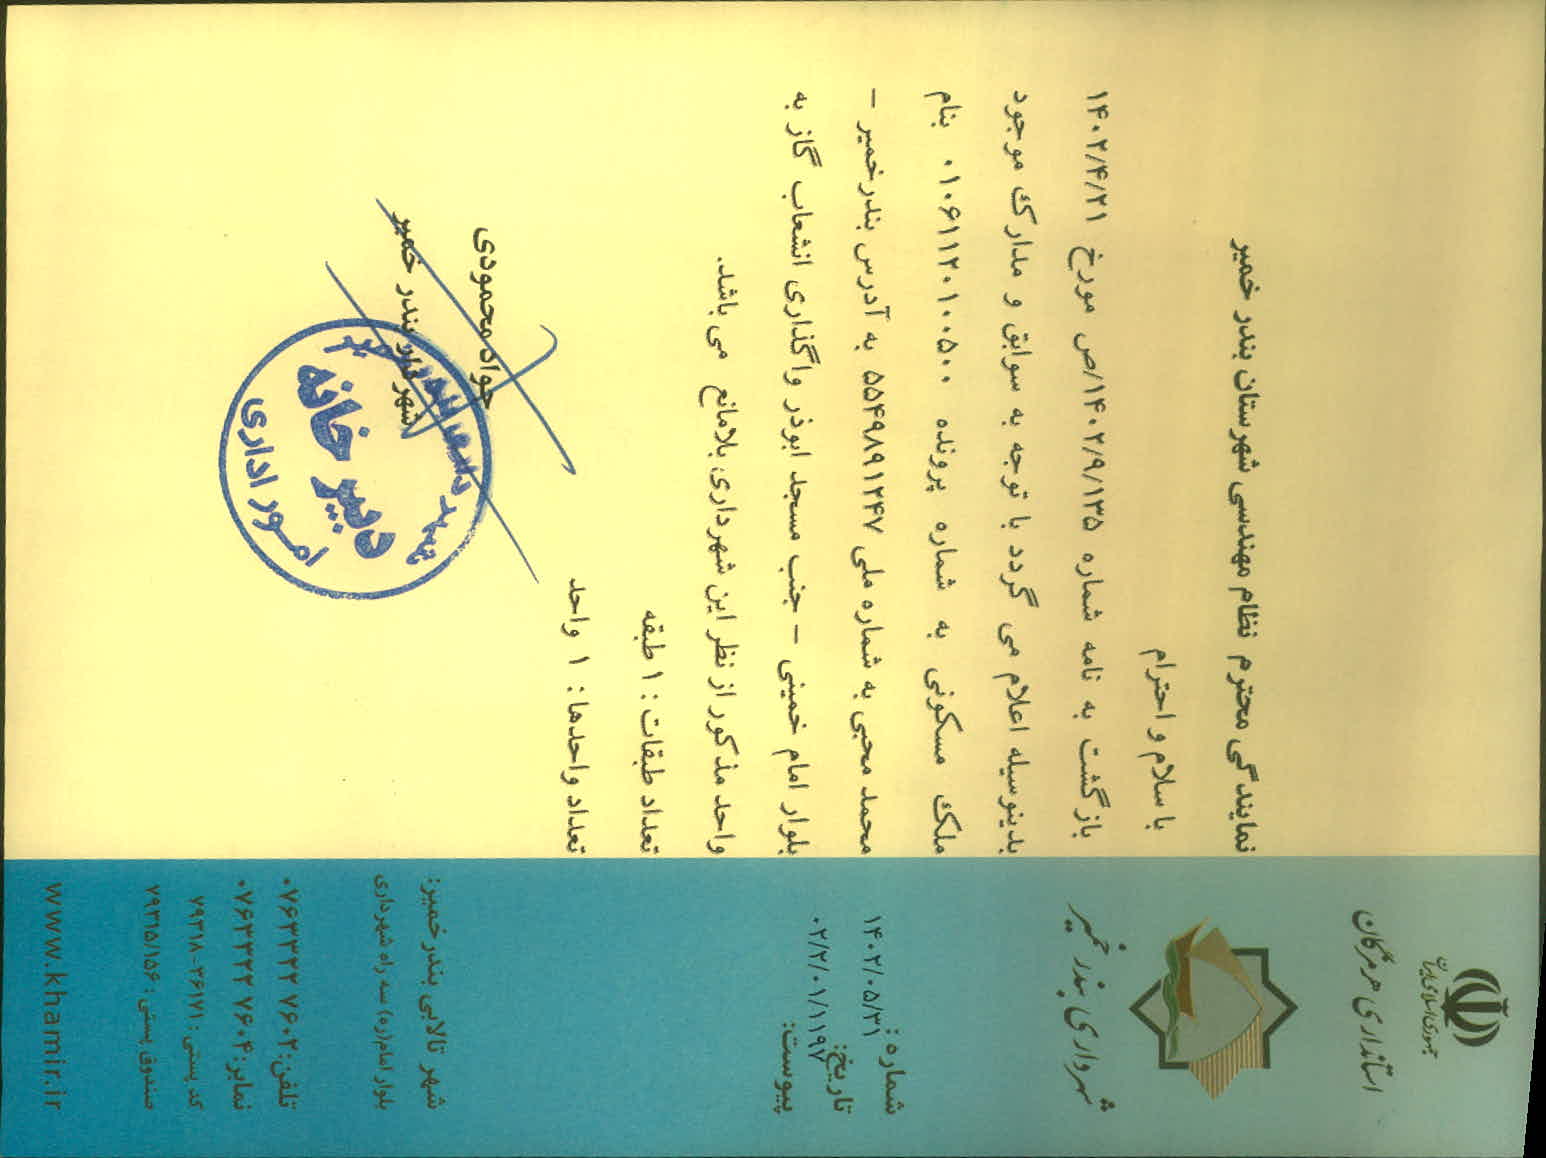 جمهوری اسلامی ایران
استانداری هرمزگان
شهرداری بندر خمیر
شماره:
۱۴۰۲/۰۵/۳۱
تاریخ:
۰۲/۲/۰۱/۱۱۹۷
پیوست:
نمایندگی محترم نظام مهندسی شهرستان بندر خمیر
با سلام و احترام
بازگشت به نامه شماره ۱۴۰۲/۹/۱۳۵/ص مورخ ۱۴۰۲/۴/۲۱
بدینوسیله اعلام می گردد با توجه به سوابق و مدارک موجود
ملک مسکونی به شماره پرونده ۰۱۰۶۱۱۲۰۱۰۰۵۰۰ بنام
محمد محبی به شماره ملی ۵۵۴۹۸۹۱۲۴۷ به آدرس بندرخمیر –
بلوار امام خمینی – جنب مسجد ابوذر واگذاری انشعاب گاز به
واحد مذکور از نظر این شهرداری بلامانع می باشد.
تعداد طبقات : ۱ طبقه
تعداد واحدها : ۱ واحد
جواد محمودی
شهردار بندر خمیر
دبیرخانه
امور اداری
شهر تالابی بندر خمیر:
بلوار امام(ره) سه راه شهرداری
تلفن: ۰۷۶۳۳۲۲ ۷۶۰۲
نمابر: ۰۷۶۳۳۲۲ ۷۶۰۴
کد پستی: ۷۹۳۱۸-۳۶۱۷۱
صندوق پستی: ۷۹۳۱۵/۱۵۶
www.khamir.ir